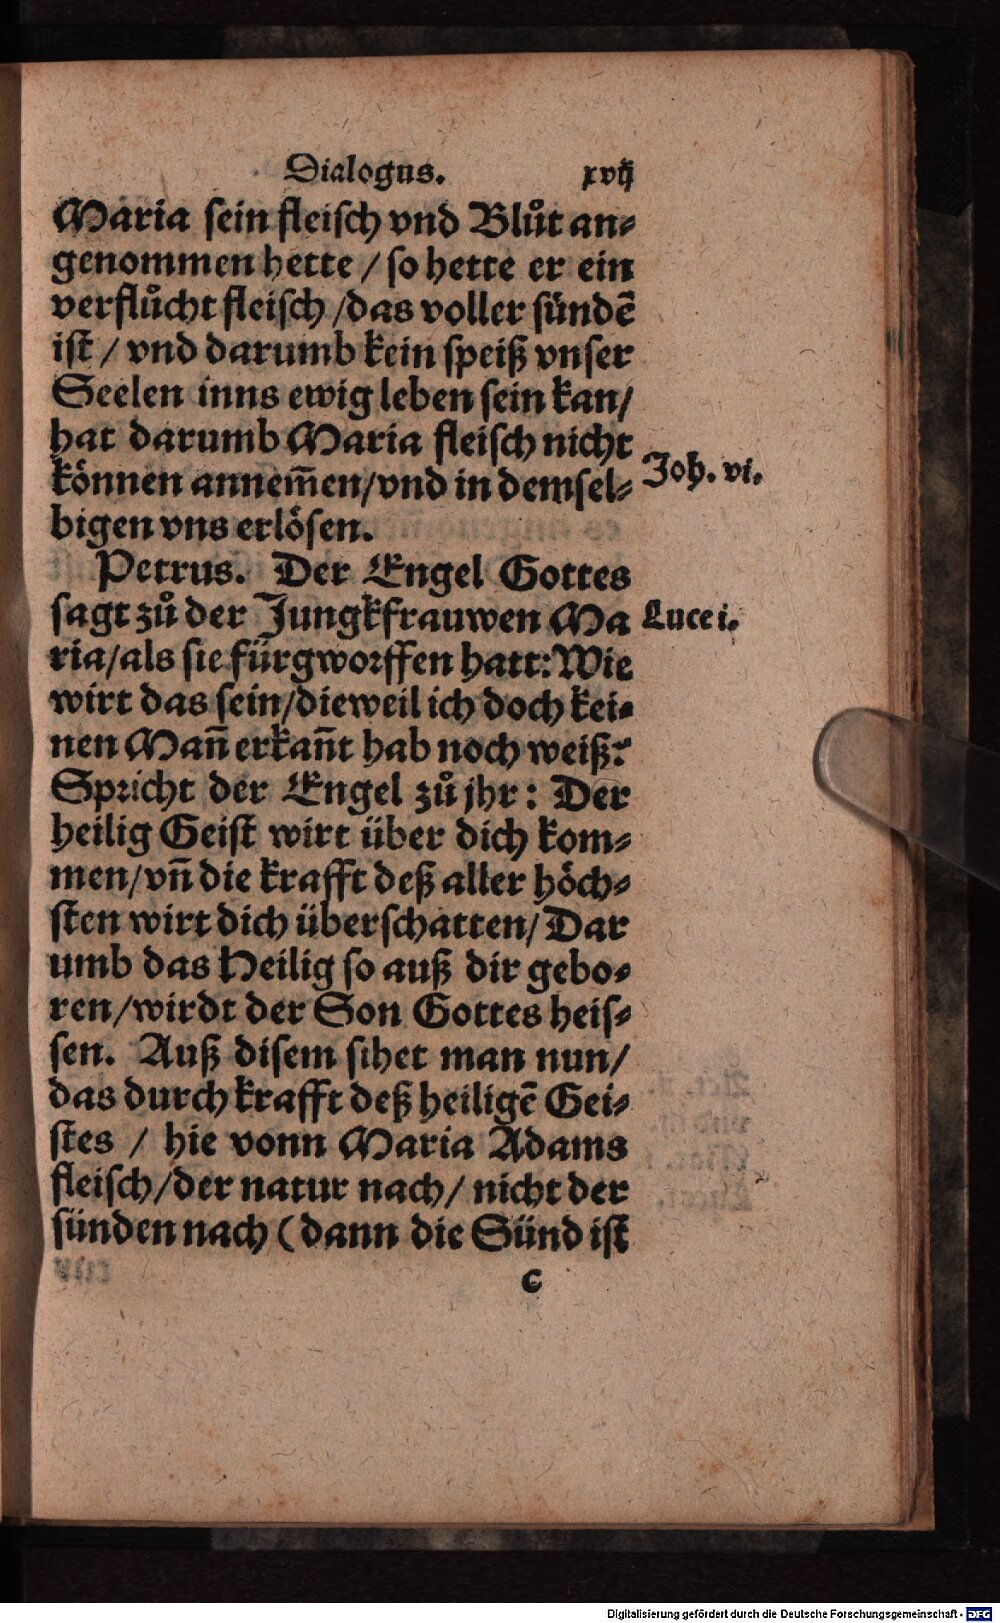 Dialogus. xvij
Maria sein fleisch vnd Blůt an-
genommen hette / so hette er ein
verflůcht fleisch / das voller sündẽ
ist / vnd darumb kein speiß vnser
Seelen inns ewig leben sein kan /
hat darumb Maria fleisch nicht
können annem̃en / vnd in demsel-
Joh. vi.
bigen vns erlösen.
Petrus. Der Engel Gottes
sagt zů der Jungkfrauwen Ma
Luce i.
ria / als sie fürgworffen hatt: Wie
wirt das sein / dieweil ich doch kei-
nen Mañ erkañt hab noch weiß?
Spricht der Engel zů jhr: Der
heilig Geist wirt über dich kom-
men / vñ die krafft deß aller höch-
sten wirt dich überschatten / Dar
umb das Heilig so auß dir gebo-
ren / wirdt der Son Gottes heis-
sen. Auß disem sihet man nun /
das durch krafft deß heiligẽ Gei-
stes / hie vonn Maria Adams
fleisch / der natur nach / nicht der
sünden nach ( dann die Sünd ist
c
Digitalisierung gefördert durch die Deutsche Forschungsgemeinschaft - DFG